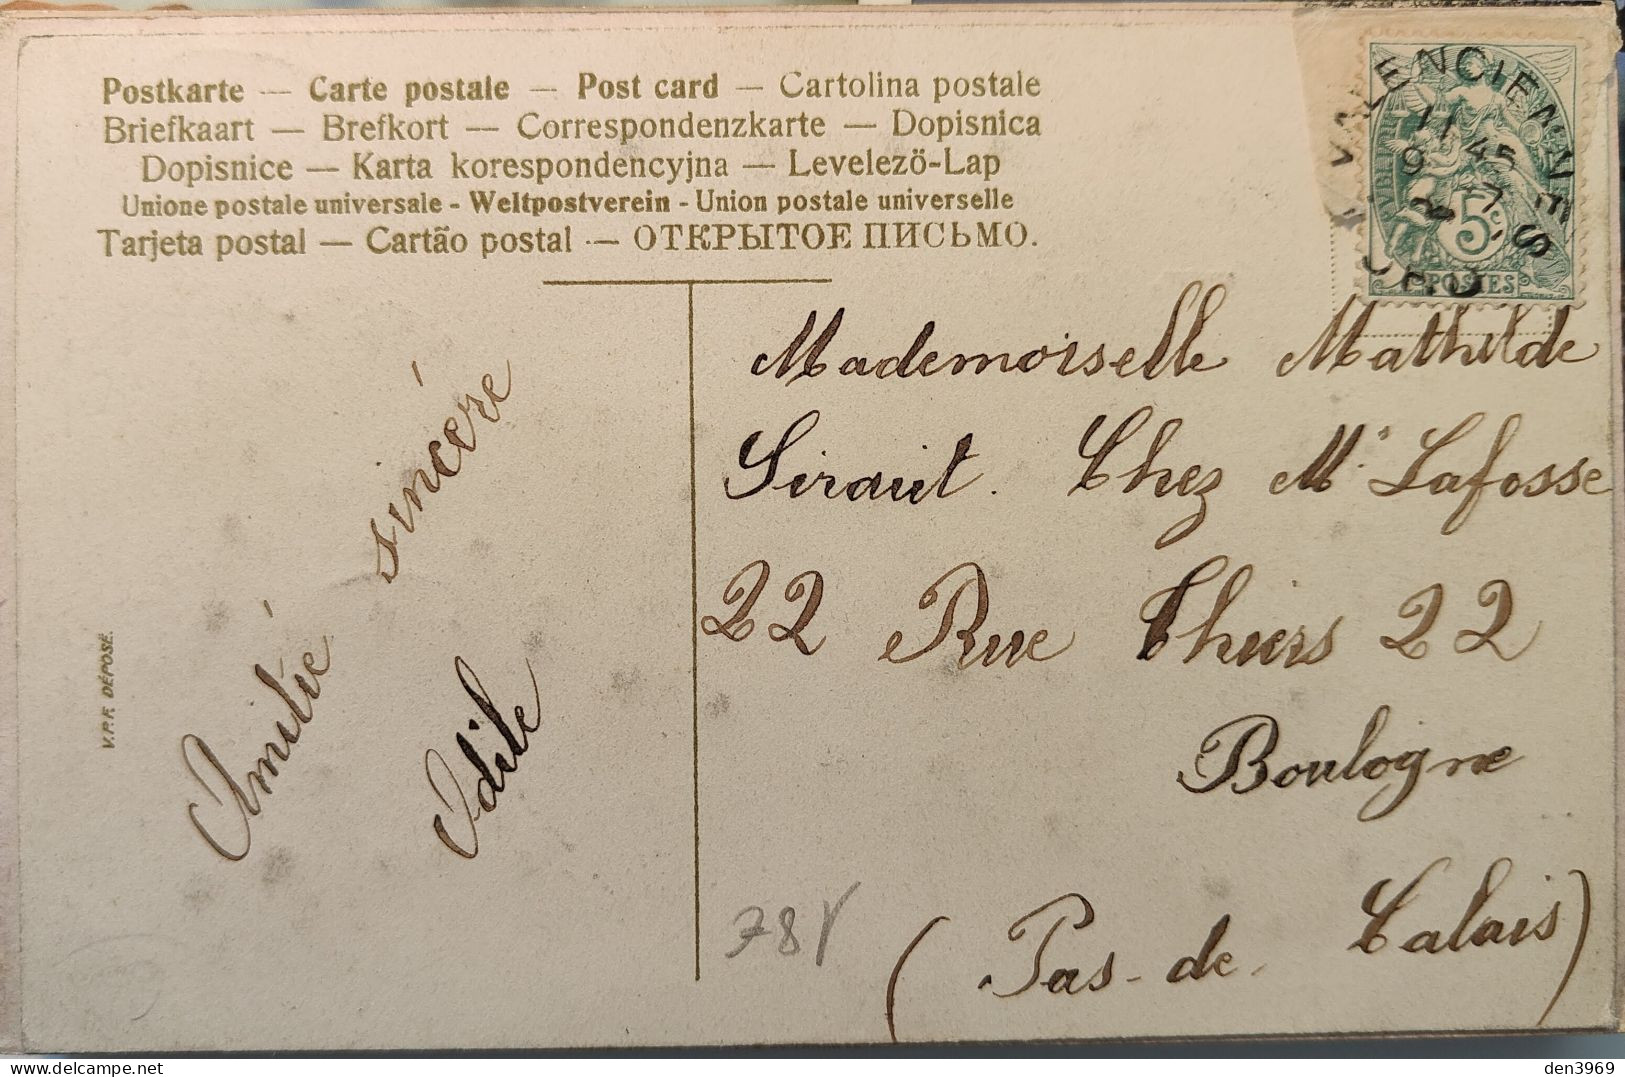 Postkarte — Carte postale — Post card — Cartolina postale
Briefkaart — Brefkort — Correspondenzkarte — Dopisnica
Dopisnice — Karta korespondencyjna — Levelezö-Lap
Unione postale universale - Weltpostverein - Union postale universelle
Tarjeta postal — Cartão postal — ОТКРЫТОЕ ПИСЬМО.
VALENCIENNES
11 45
9 - 7
NORD
5c
POSTES
Amitié sincère
Odile
V.P.F. DÉPOSÉ.
Mademoiselle Mathilde
Siraut. Chez Mr Lafosse
22 Rue Thiers 22
Boulogne
(Pas-de-Calais)
78
den3969